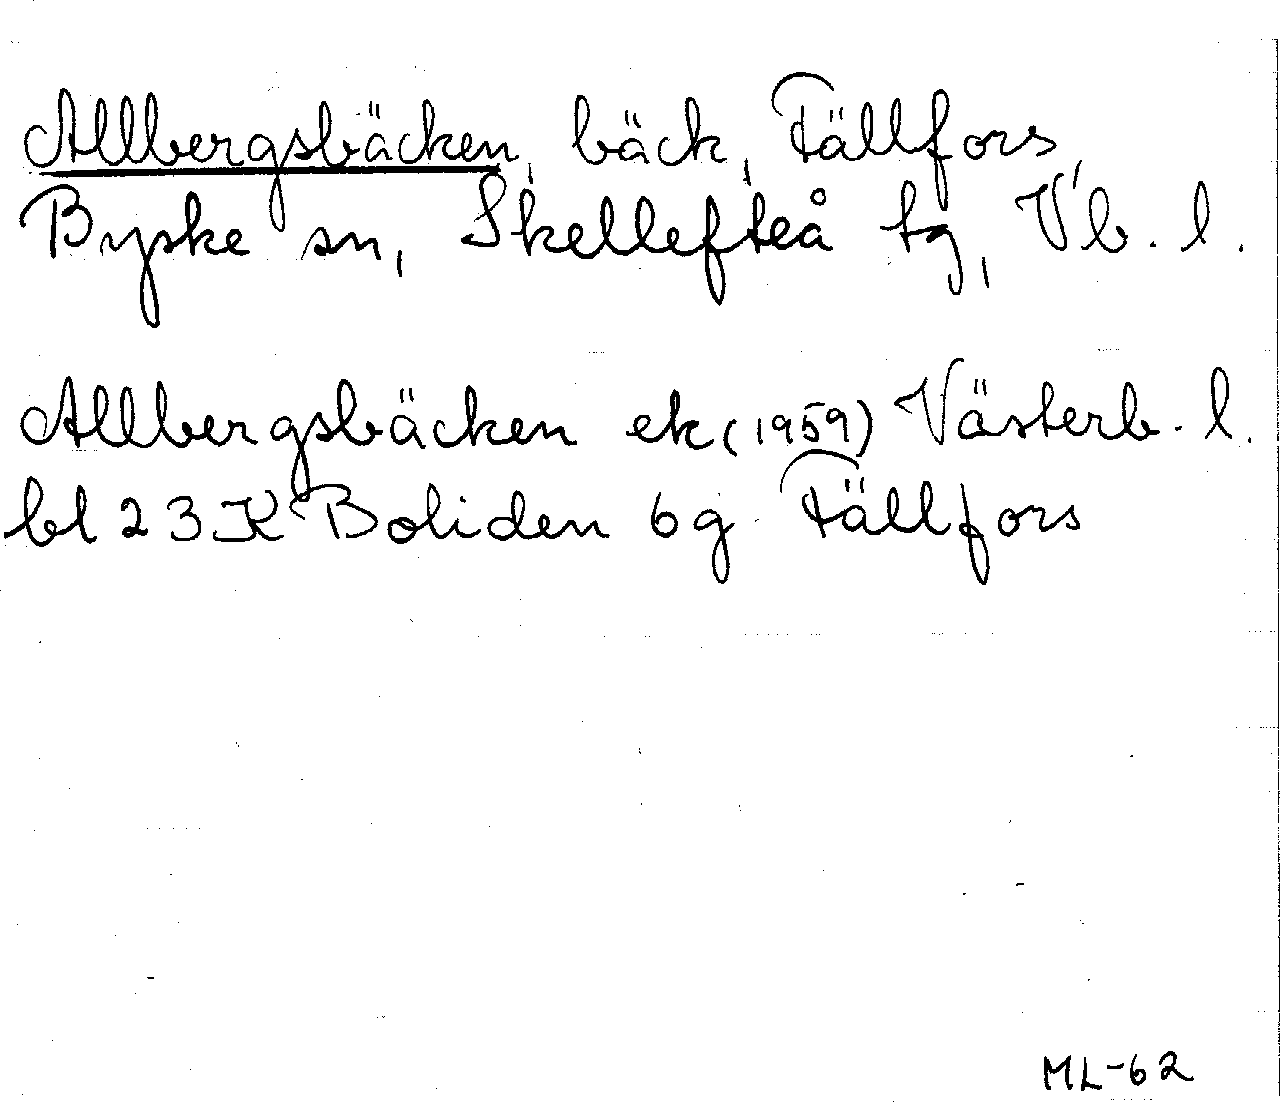 Allbergsbäcken, bäck, Fällfors,
Byske sn, Skellefteå tg, Vb. l.
Allbergsbäcken ek (1959) Västerb. l.
bl 23K Boliden 6g Fällfors
ML-62